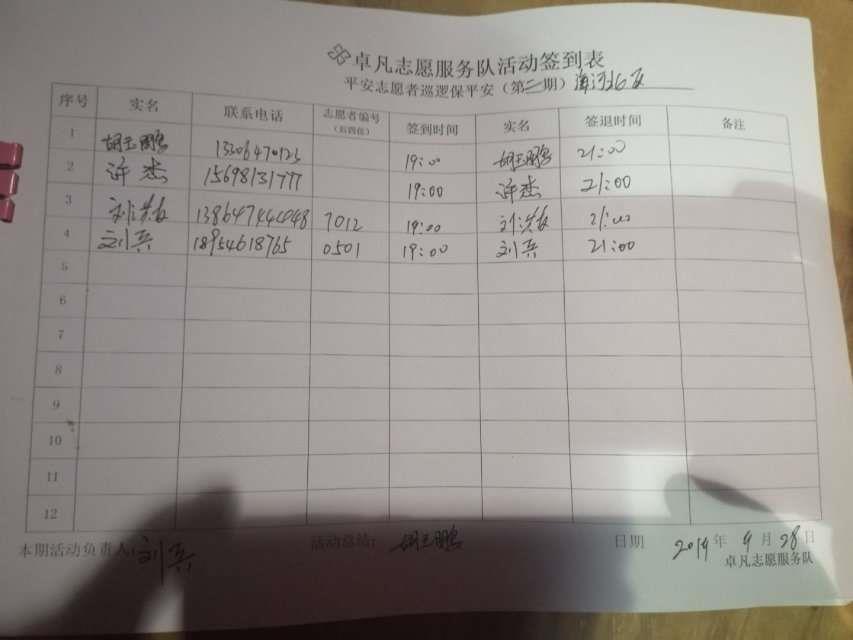 卓凡志愿服务队活动签到表
平安志愿者巡逻保平安（第二期）海河北区
序号 实名 联系电话 志愿者编号（后四位） 签到时间 实名 签退时间 备注
1 胡玉鹏 19:00 胡玉鹏 21:00
2 许杰 15698131777 19:00 许杰 21:00
3 刘洪敏 7012 19:00 刘洪敏 21:00
4 刘兵 18954618765 0501 19:00 刘兵 21:00
5
6
7
8
9
10
11
12
本期活动负责人:刘兵 活动总结: 胡玉鹏 日期 2019年9月28日
卓凡志愿服务队